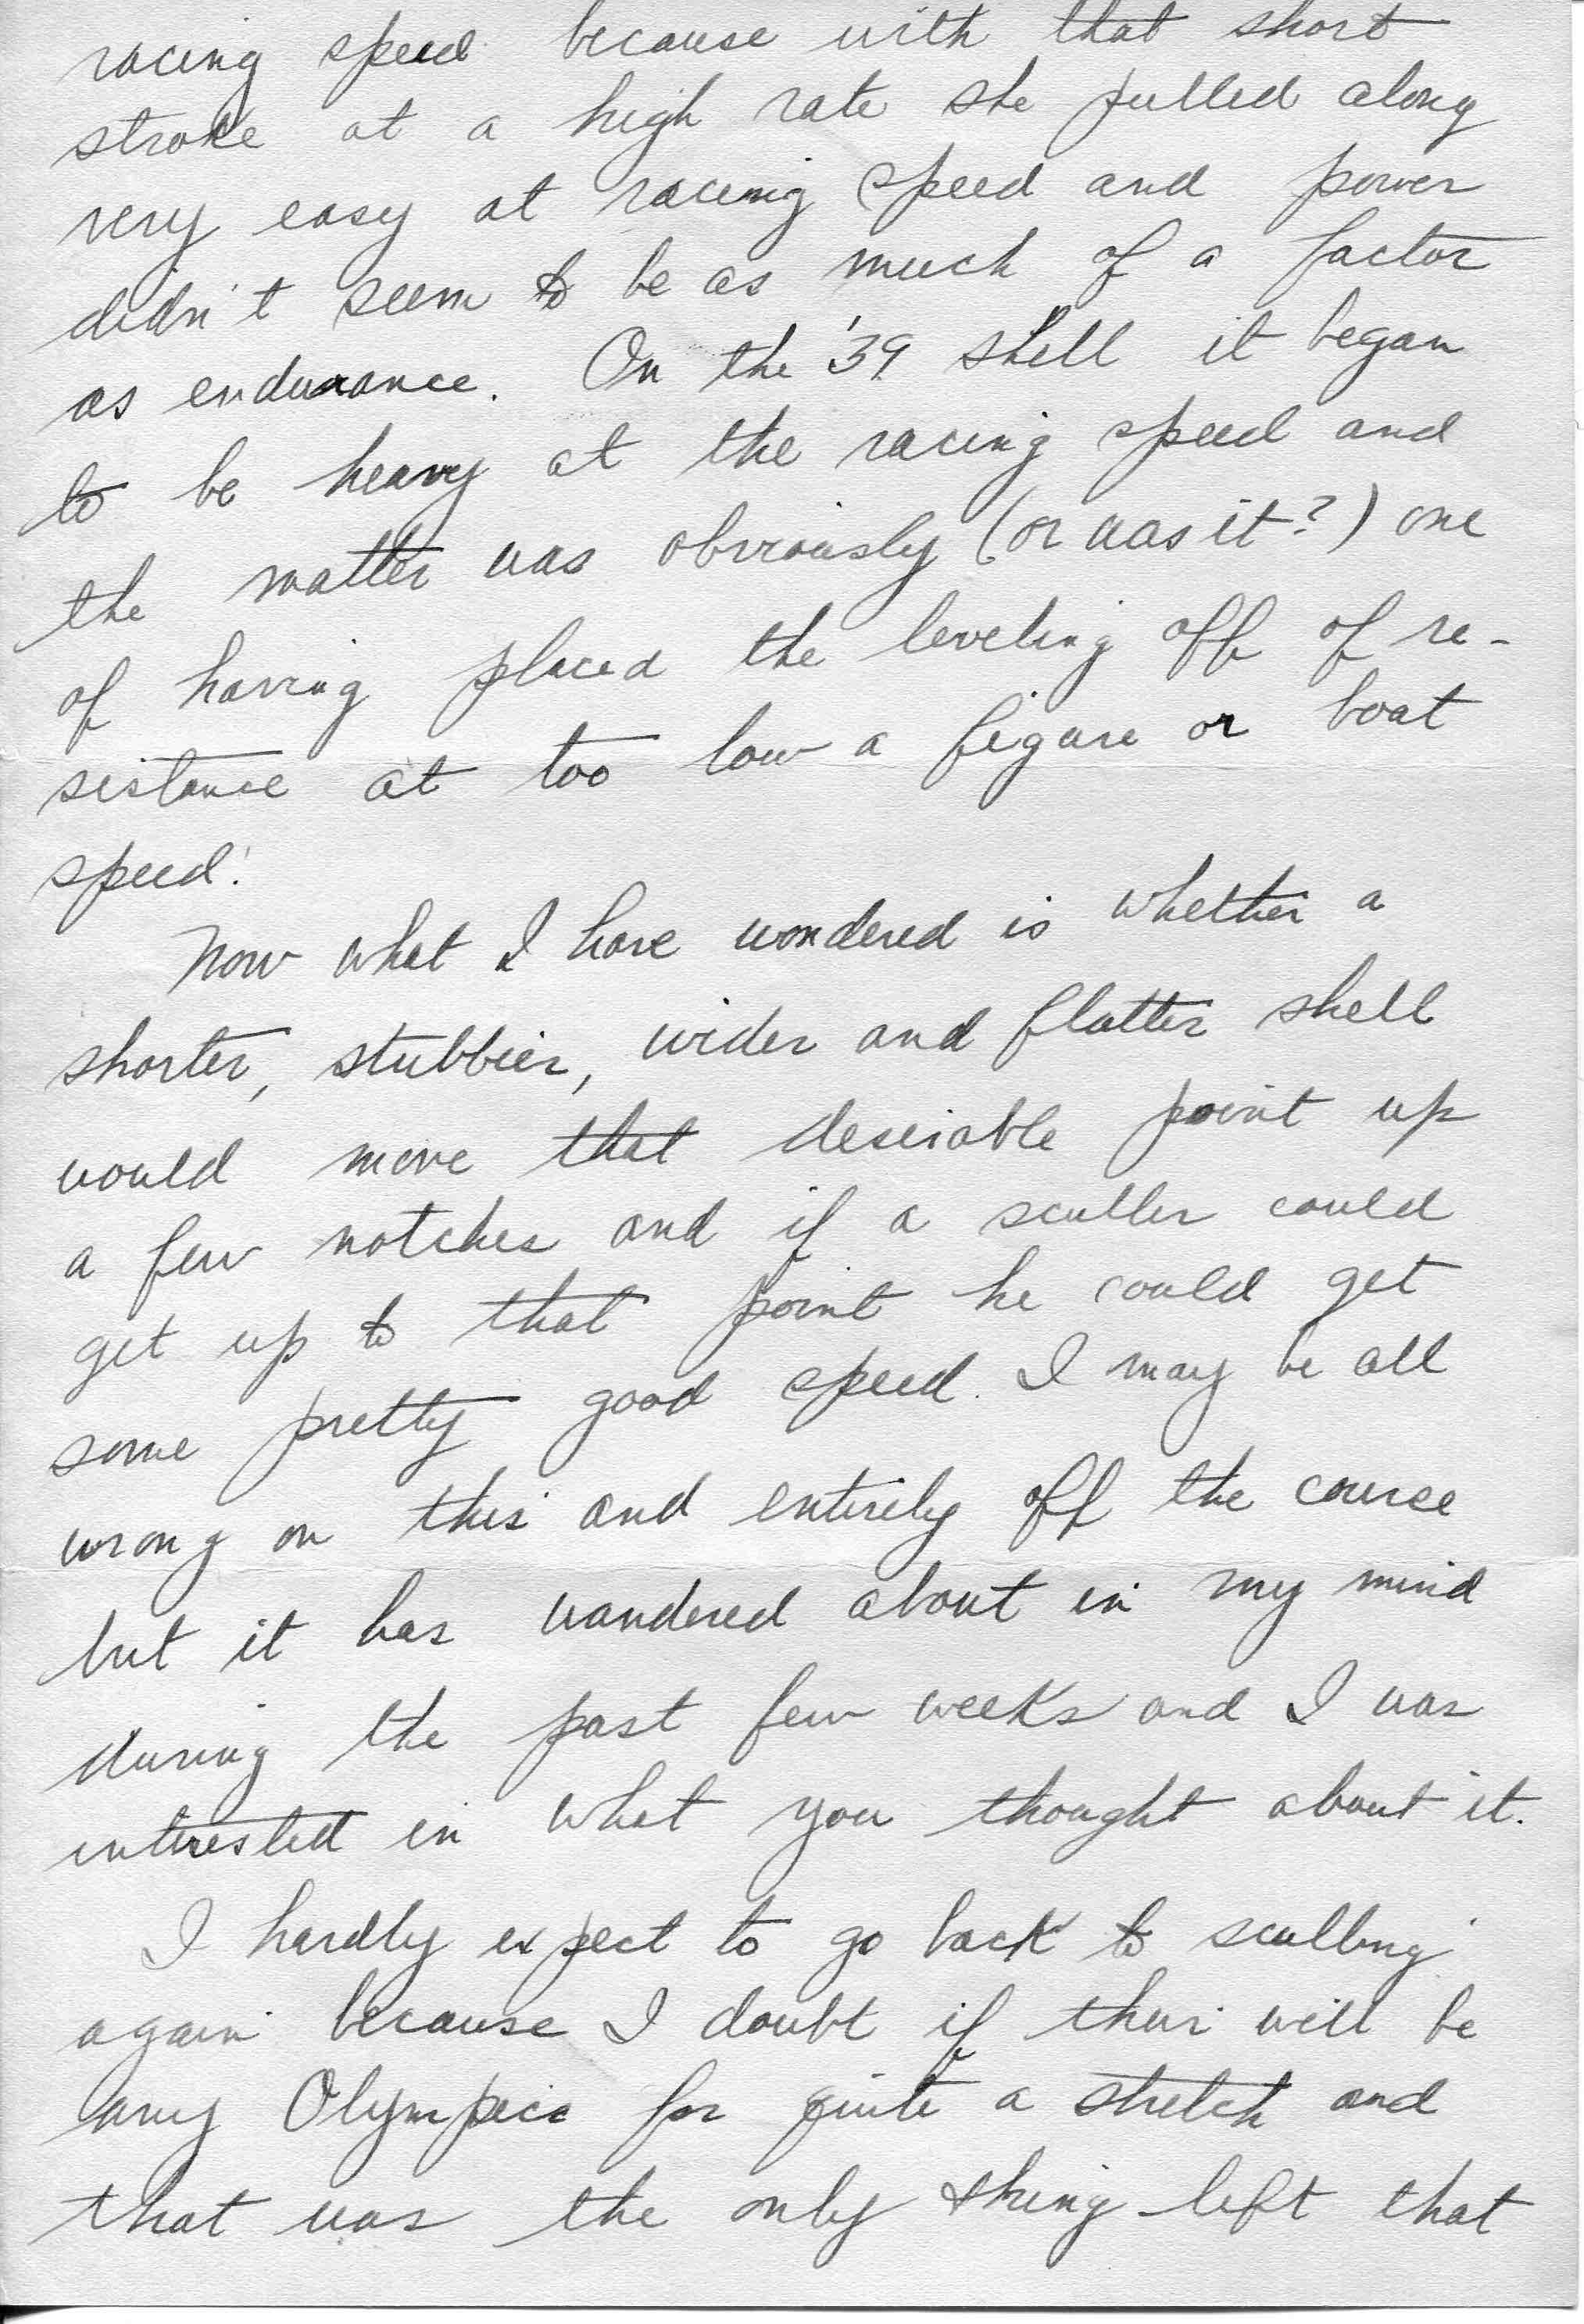 racing speed because with that short
stroke at a high rate she pulled along
very easy at racing speed and power
didn't seem to be as much of a factor
as endurance. On the '39 shell it began
to be heavy at the racing speed and
the matter was obviously (or was it?) one
of having placed the leveling off of re-
sistance at too low a figure or boat
speed!
Now what I have wondered is whether a
shorter, stubbier, wider and flatter shell
would move that desirable point up
a few notches and if a sculler could
get up to that point he could get
some pretty good speed. I may be all
wrong on this and entirely off the course
but it has wandered about in my mind
during the past few weeks and I was
interested in what you thought about it.
I hardly expect to go back to sculling
again because I doubt if their will be
any Olympics for quite a stretch and
that was the only thing left that